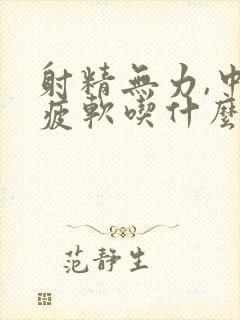 射精無力,中
疲軟喫什麼
范静生